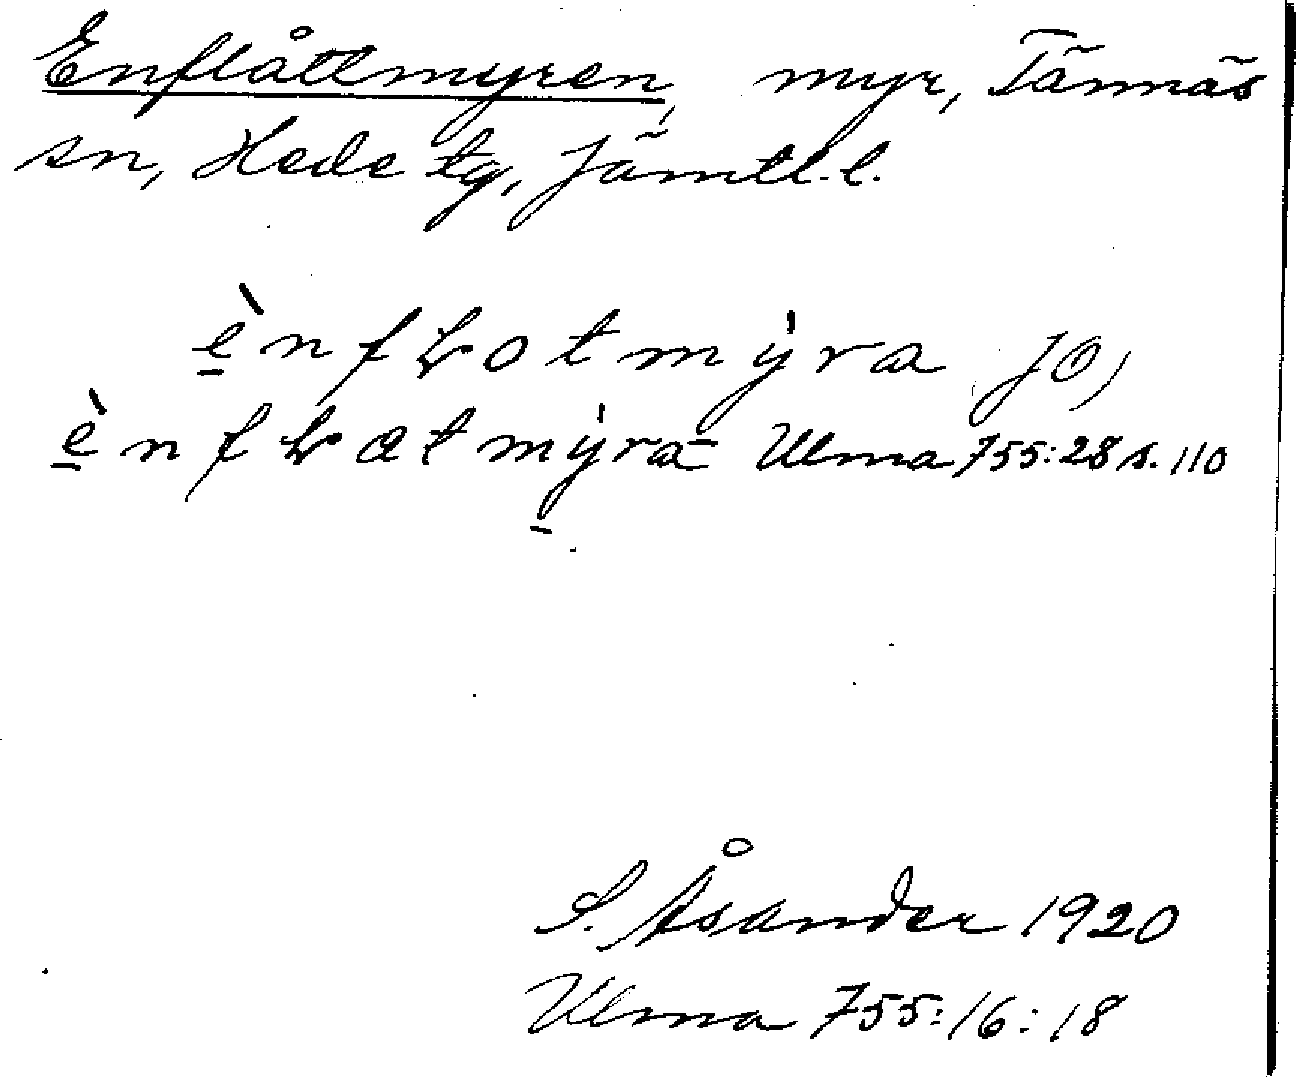 Enflåttmyren, myr, Tännäs
sn, Hede tg, Jämtl. l.
è̱nfɫotmy̍ra JÖ,
è̱nfɫɑtmy̍ra Ulma 755:28 s. 110
S. Åsander 1920
Ulma 755:16:18